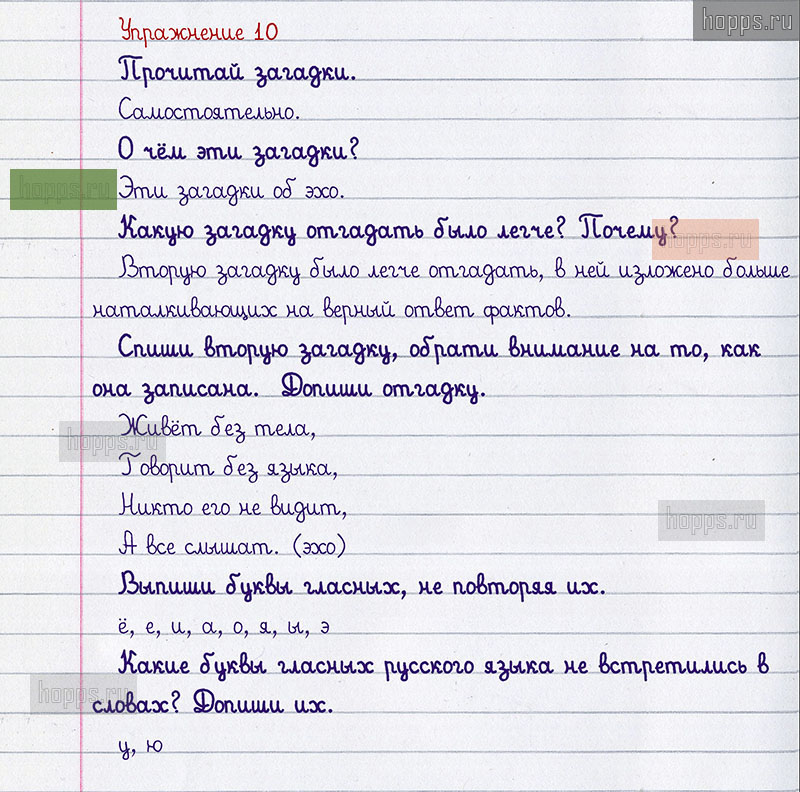 hopps.ru
Упражнение 10
Прочитай загадки.
Самостоятельно.
О чём эти загадки?
hopps.ru
Эти загадки об эхо.
Какую загадку отгадать было легче? Почему?
hopps.ru
Вторую загадку было легче отгадать, в ней изложено больше
наталкивающих на верный ответ фактов.
Спиши вторую загадку, обрати внимание на то, как
она записана. Допиши отгадку.
Живёт без тела,
hopps.ru
Говорит без языка,
Никто его не видит,
hopps.ru
А все слышат. (эхо)
Выпиши буквы гласных, не повторяя их.
ё, е, и, а, о, я, ы, э
Какие буквы гласных русского языка не встретились в
hopps.ru
словах? Допиши их.
у, ю